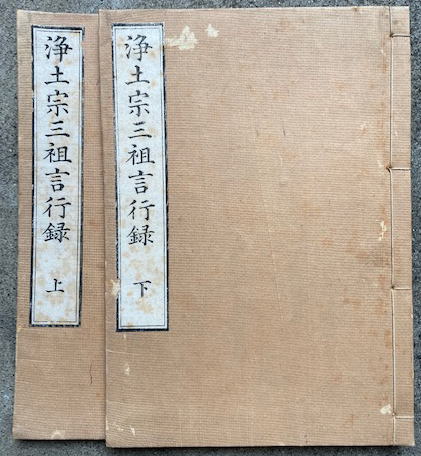 浄土宗三祖言行録 下
浄土宗三祖言行録 上